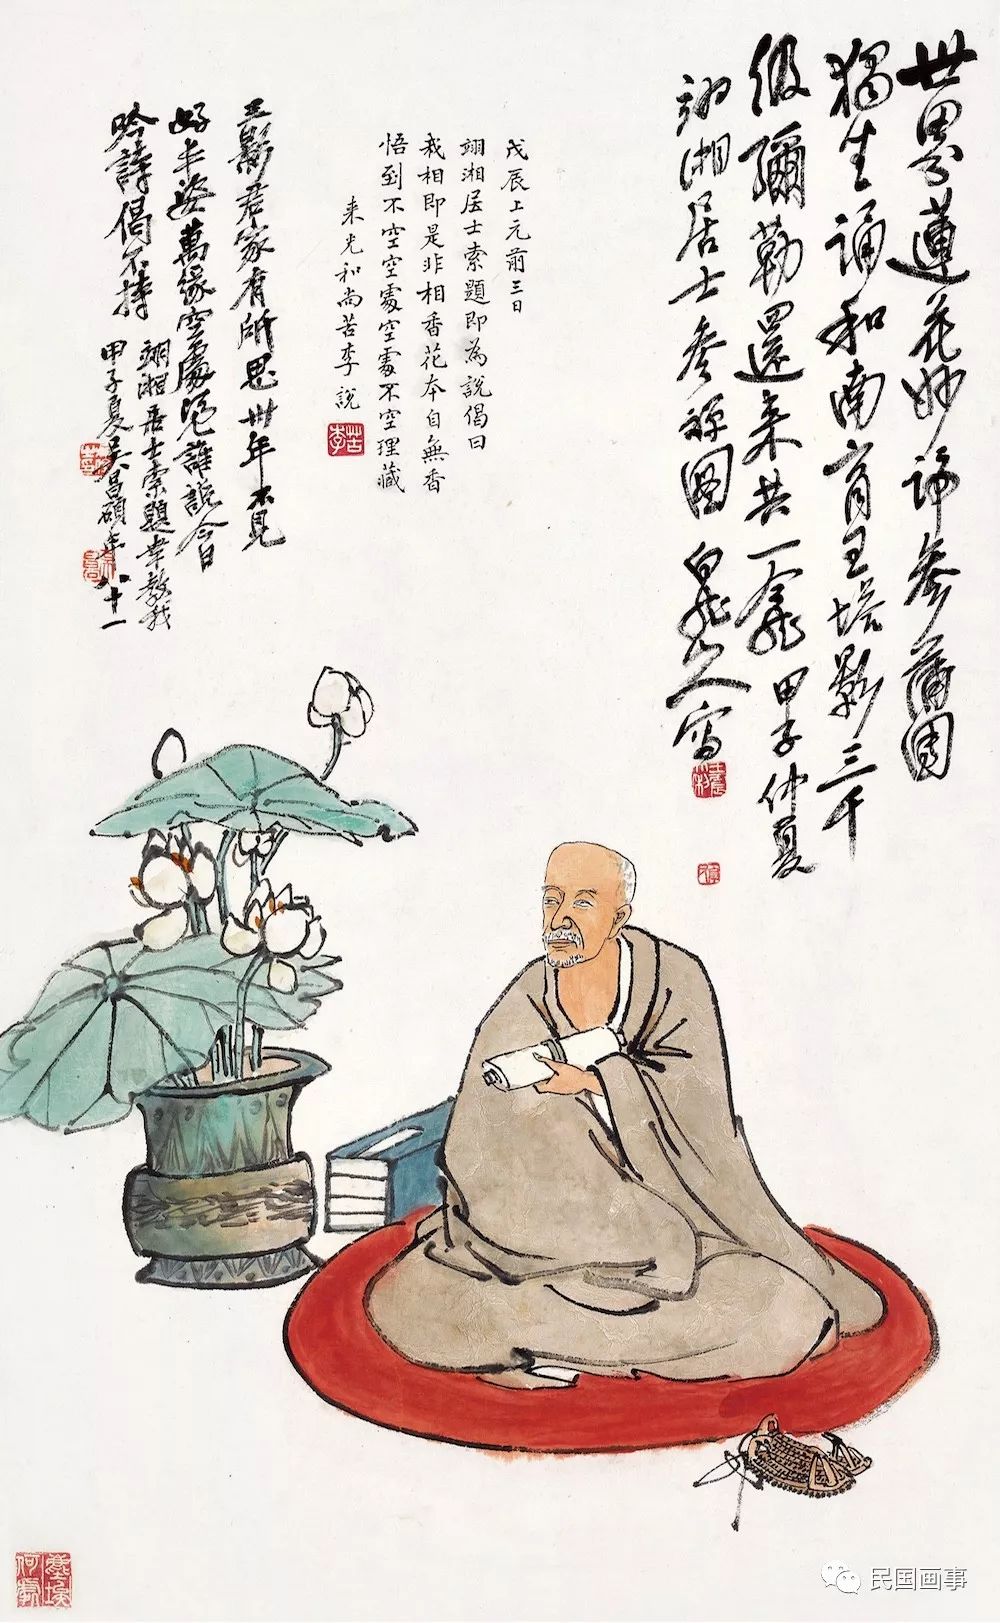 世界蓮花妙諦參蒲團
獨生誦和南育王塔影三千
級彌勒還來共一龕 甲子仲夏
翊湘居士參禪圖 白龍山人寫
戊辰上元前三日
翊湘居士索題即為說偈曰
我相即是非相香花本自無香
悟到不空空處空處不空理藏
来光和尚苦李說
苦李
玉影君家有所思卅年不見
好丰姿萬緣空處
誰說今日
吟詩偈不持
翊湘居士索題幸教我
甲子夏吳昌碩年八十一
民国画事